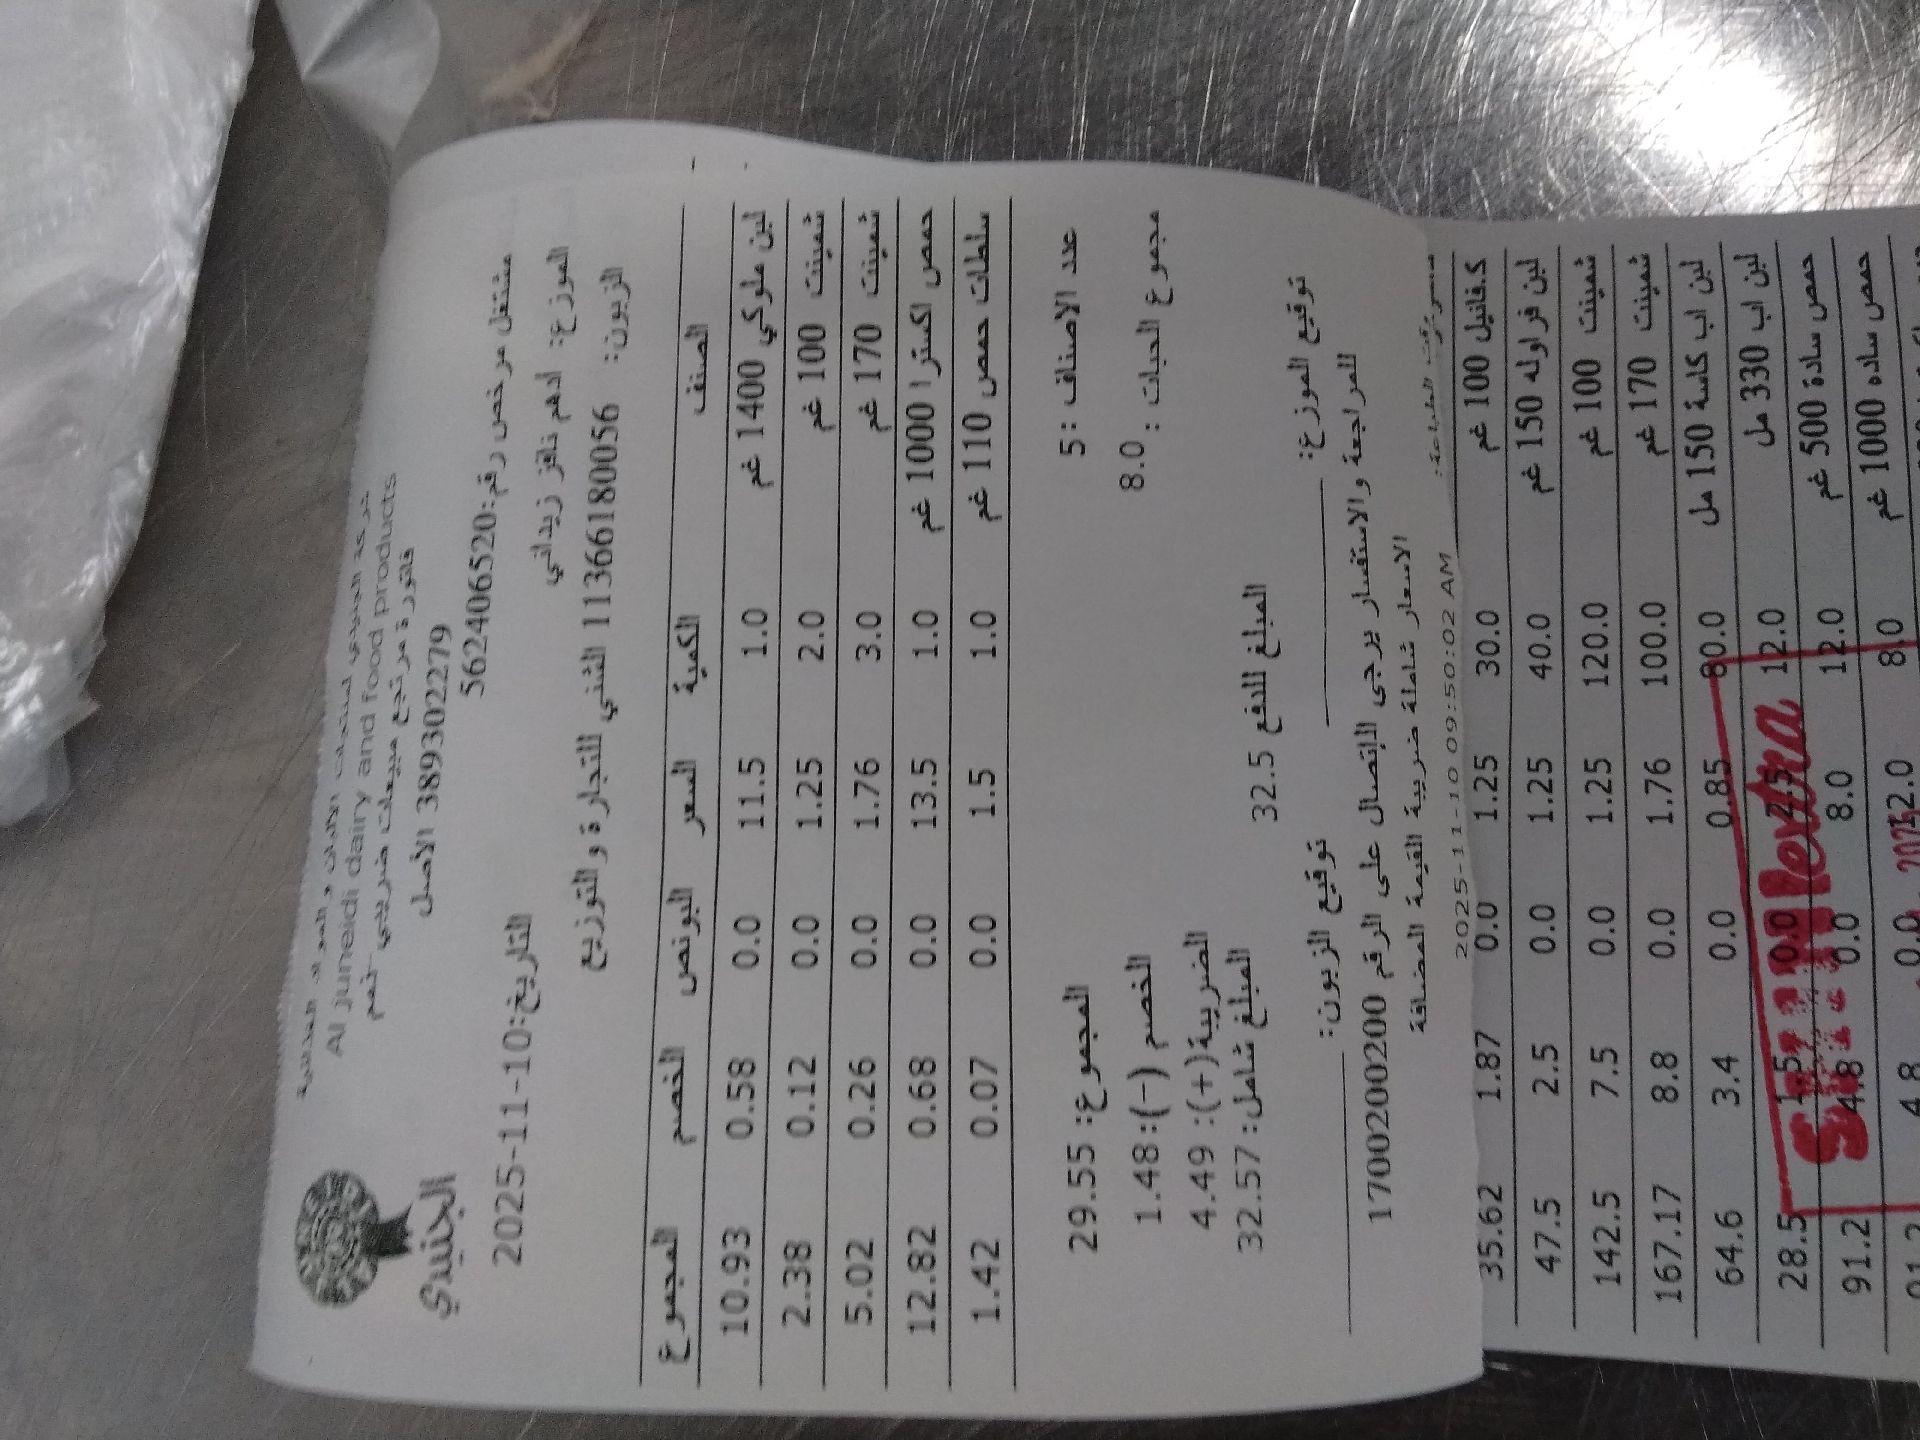 شركة الجنيدي لمنتجات الالبان و المواد الغذائية
Al juneidi dairy and food products
فاتورة مرتجع مبيعات ضريبي خصم
389302279 الأصل
الجنيدي
مشتغل مرخص رقم:562406520
التاريخ:10-11-2025
الموزع: ادهم نافز زيداني
الزبون: 1136618​0056 الثني للتجارة و التوزيع
الصنف الكمية السعر البونص الخصم المجموع
لبن ملوكي 1400 غم 1.0 11.5 0.0 0.58 10.93
شمينت 100 غم 2.0 1.25 0.0 0.12 2.38
شمينت 170 غم 3.0 1.76 0.0 0.26 5.02
حمص اكسترا 1000 غم 1.0 13.5 0.0 0.68 12.82
سلطات حمص 110 غم 1.0 1.5 0.0 0.07 1.42
عدد الاصناف :5
المجموع: 29.55
مجموع الحبات : 8.0
الخصم (-):1.48
الضريبة(+): 4.49
المبلغ شامل: 32.57
المبلغ للدفع 32.5
توقيع الموزع: توقيع الزبون:
للمراجعة والاستفسار يرجى الإتصال على الرقم 1700200200
الاسعار شاملة ضريبة القيمة المضافة
2025-11-10 09:50:02 AM
ك.فانيل 100 غم 30.0 1.25 0.0 1.87 35.62
لبن فراوله 150 غم 40.0 1.25 0.0 2.5 47.5
شمينت 100 غم 120.0 1.25 0.0 7.5 142.5
شمينت 170 غم 100.0 1.76 0.0 8.8 167.17
لبن اب كاسة 150 مل 80.0 0.85 0.0 3.4 64.6
لبن اب 330 مل 12.0 2.5 0.0 1.5 28.5
حمص سادة 500 غم 12.0 8.0 0.0 4.8 91.2
حمص ساده 1000 غم 8.0 12.0 0.0 4.8 91.2